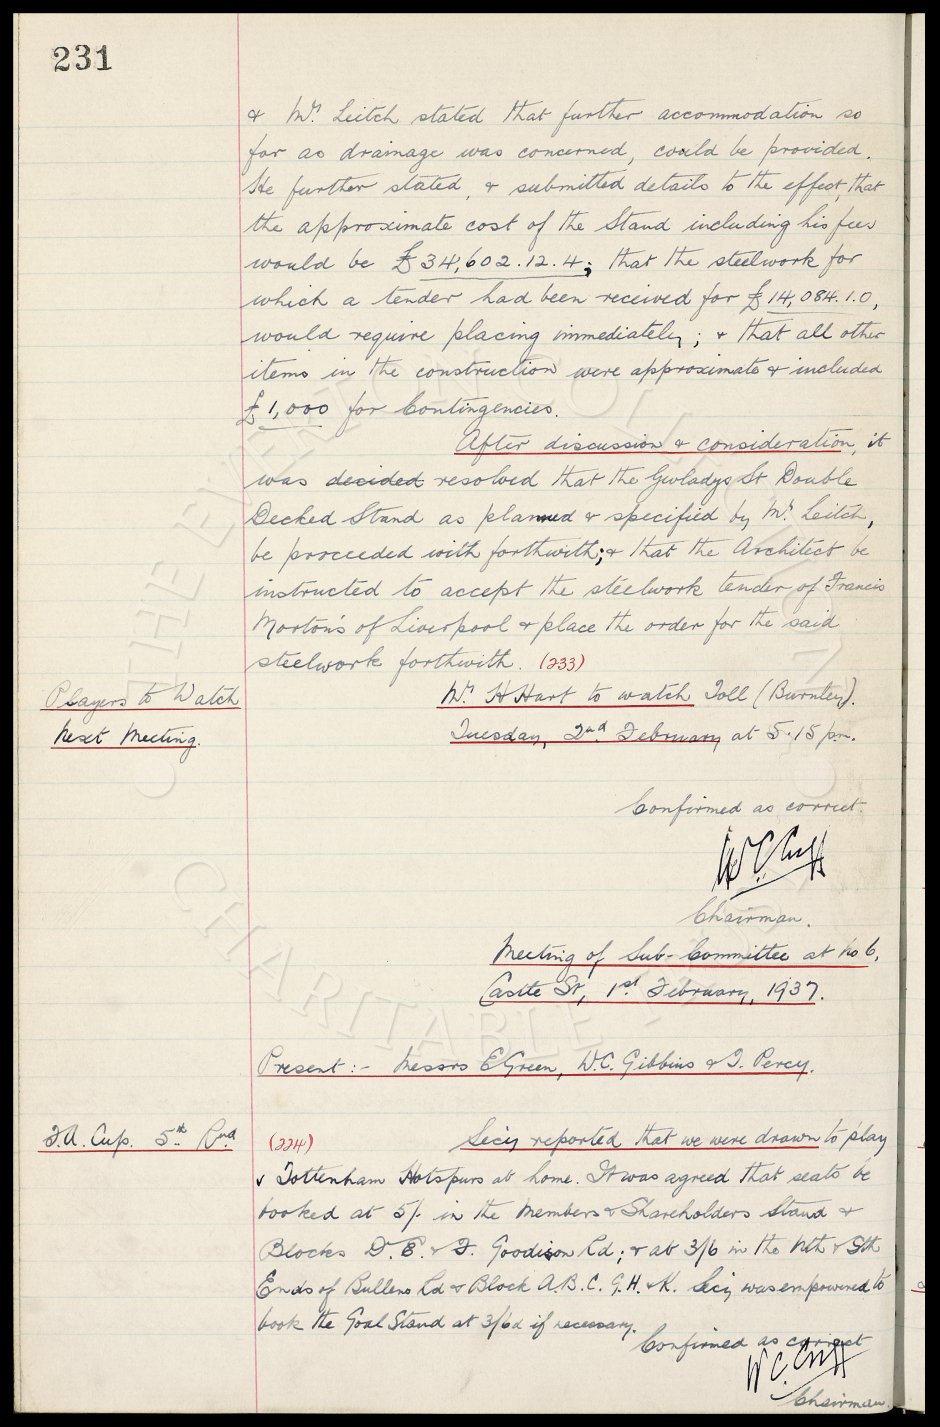 231
& Mr. Leitch stated that further accommodation so
far as drainage was concerned, could be provided.
He further stated, & submitted details to the effect, that
the approximate cost of the Stand including his fees
would be £34,602.12.4; that the steelwork for
which a tender had been received for £14,084.1.0,
would require placing immediately; & that all other
items in the construction were approximate & included
£1,000 for Contingencies.
After discussion & consideration, it
was decided resolved that the Gwladys St Double
Decked Stand as planned & specified by Mr. Leitch,
be proceeded with forthwith; & that the Architect be
instructed to accept the steelwork tender of Francis
Morton's of Liverpool & place the order for the said
steelwork forthwith. (233)
Players to Watch
Mr. H Hart to watch Toll (Burnley).
Next Meeting.
Tuesday, 2nd February at 5.15 p.m.
Confirmed as correct.
W C Cuff
Chairman.
Meeting of Sub-Committee at No 6,
Castle St, 1st February, 1937.
Present:- Messrs E Green, W.C. Gibbins & T. Percy.
F.A. Cup. 5th Rnd
(224)
Secy reported that we were drawn to play
v Tottenham Hotspurs at home. It was agreed that seats be
booked at 5/- in the Members & Shareholders Stand &
Blocks D. E. & F. Goodison Rd; & at 3/6 in the Nth & Sth
Ends of Bullens Rd & Block A.B.C. G.H. & K. Secy was empowered to
book the Goal Stand at 3/6d if necessary.
Confirmed as correct
W C Cuff
Chairman.
THE EVERTON COLLECTION
CHARITABLE TRUST